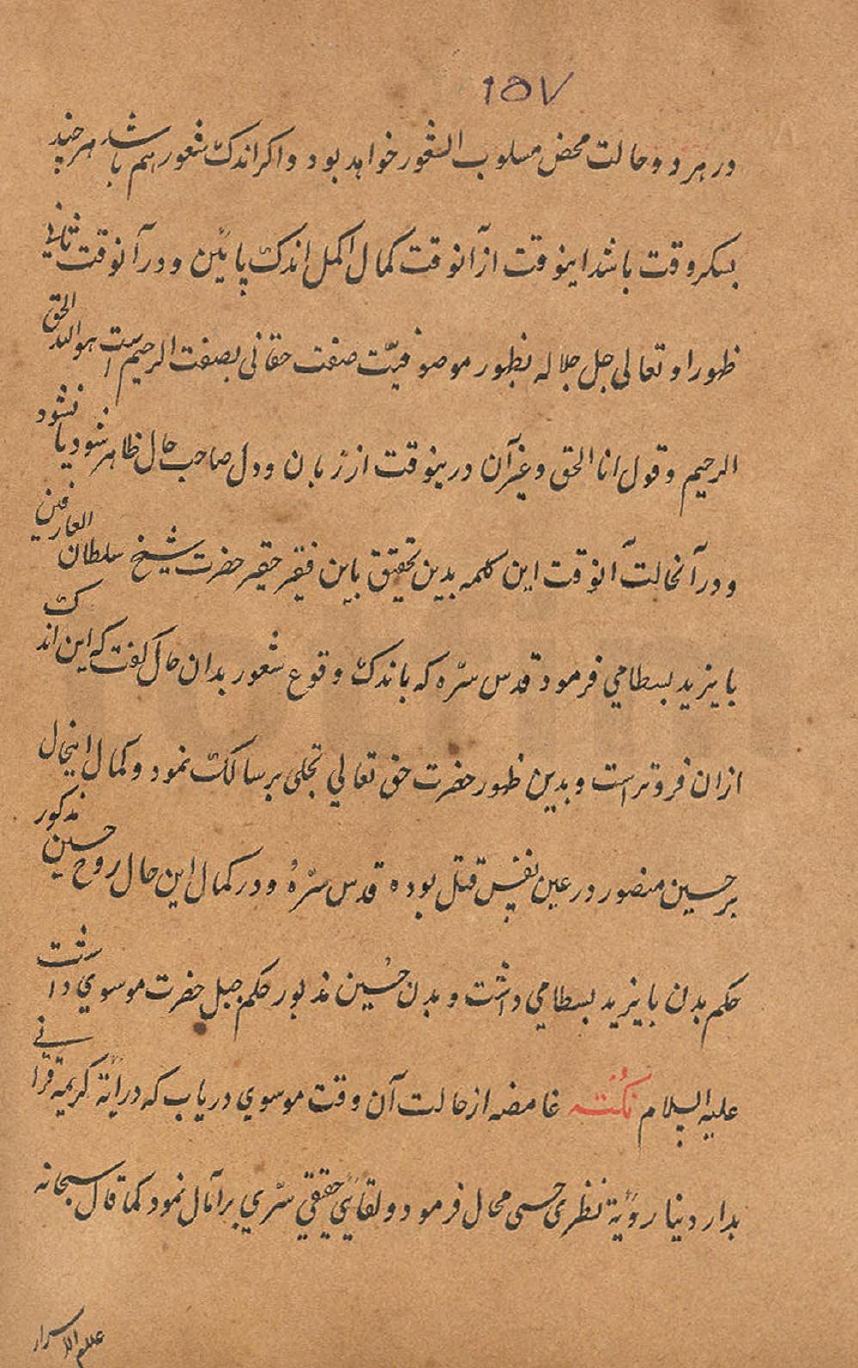 ۱۵۷
در هر دو حالت محض مسلوب الشعور خواهد بود و اکر اندک شعور هم باشد هر چند
بسکر وقت باشد اینوقت از آنوقت کمال اکمل اندک پائین و در آنوقت ثانی
ظهور او تعالی جل جلاله بظهور موصوفیّت صفت حقانی بصفت الرحیم است هو الله الحق
الرحیم و قول انا الحق و غیر آن درینوقت از زبان و دل صاحب حال ظاهر شود یا نشود
و در آنحالت آنوقت این کلمه بدین تحقیق باین فقیر حقیر حضرت شیخ سلطان العارفین
بایزید بسطامی فرمود قدس سرّه که باندک وقوع شعور بدان حال کفت که این اندک
ازان فروتر است و بدین ظهور حضرت حق تعالی تجلی بر سالک نمود و کمال اینحال
بر حسین منصور در عین نفس قتل بوده قدس سرّهُ و در کمال این حال روح حسین مذکور
حکم بدن بایزید بسطامی داشت و بدن حُسین مذبور حکم جبل حضرت موسوی داشت
علیه السلام نکُته غامضه از حالت آن وقت موسوی دریاب که در آیة کریمه قرآنی
بدار دنیا رؤیة نظری حسی محال فرمود و لقایٔ حقیقی سرّی بر آمال نمود کما قال سبحانه
علم الاسرار